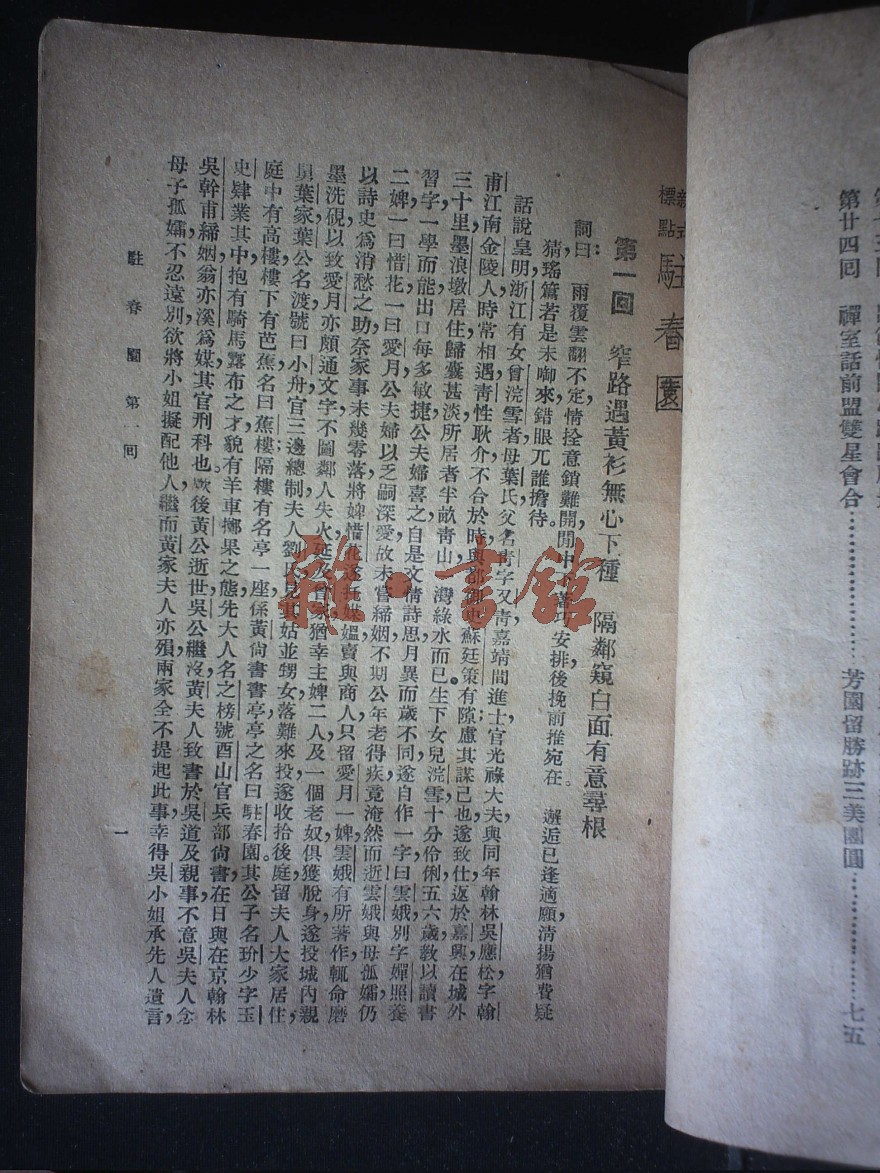 第廿四囘　禪室話前盟雙星會合……………芳園留勝跡三美團圓……………七五
新式標點 駐春園
第一囘　窄路遇黃衫無心下種　隔鄰窺白面有意尋根
詞曰：雨覆雲翻不定，情拴意鎖難開，閒中不著巧安排，後挽前推宛在。　邂逅已逢適願，淸揚猶費疑
猜，瑤篇若是未啣來，錯眼兀誰擔待。
話說皇明浙江有女曾浣雪者，母葉氏，父名靑，字又靑，嘉靖間進士，官光祿大夫，與同年翰林吳應松字翰
甫，江南金陵人，時常相遇，靑性耿介，不合於時，與都御史蘇廷策有隙，慮其謀己也，遂致仕返於嘉興，在城外
三十里墨浪墩居住，歸囊甚淡，所居者半畝靑山，灣綠水而已。生下女兒浣雪，十分伶俐，五六歲敎以讀書
習字，一學而能，出口每多敏捷，公夫婦喜之，自是文情詩思，月異而歲不同，遂自作一字曰雲娥，別字嬋照，養
二婢，一曰惜花，一曰愛月，公夫婦以乏嗣深愛，故未嘗締姻，不期公年老得疾，竟淹然而逝，雲娥與母孤孀，仍
以詩史爲消愁之助，奈家事未幾零落，將婢惜花遂托媒媼賣與商人，只留愛月一婢，雲娥有所著作，輒命磨
墨洗硯，以致愛月亦頗通文字，不圖鄰人失火，延及曾家，猶幸主婢二人及一個老奴俱獲脫身，遂投城內親
舅葉家，葉公名渡，號曰小舟，官三邊總制，夫人劉氏，見其姑並甥女落難來投，遂收拾後庭，留夫人大家居住，
庭中有高樓，樓下有芭蕉，名曰蕉樓，隔樓有名亭一座，係黃尙書書亭，亭之名曰駐春園。其公子名玠，少字玉
史，肄業其中，抱有騎馬露布之才，貌有羊車擲果之態，先大人名之榜，號酉山，官兵部尙書，在日與在京翰林
吳翰甫締姻，翁亦溪爲媒，其官刑科也，厥後黃公逝世，吳公繼沒，黃夫人致書於吳，道及親事，不意吳夫人念
母子孤孀，不忍遠別，欲將小姐擬配他人，繼而黃家夫人亦殞，兩家全不提起此事，幸得吳小姐承先人遺言，
駐春園　第一囘
一
雜·書館